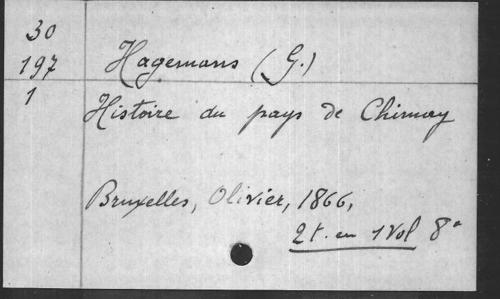 30
197
1
Hagemans (G.)
Histoire du pays de Chimay
Bruxelles, Olivier, 1866,
2 t. en 1 vol 8°